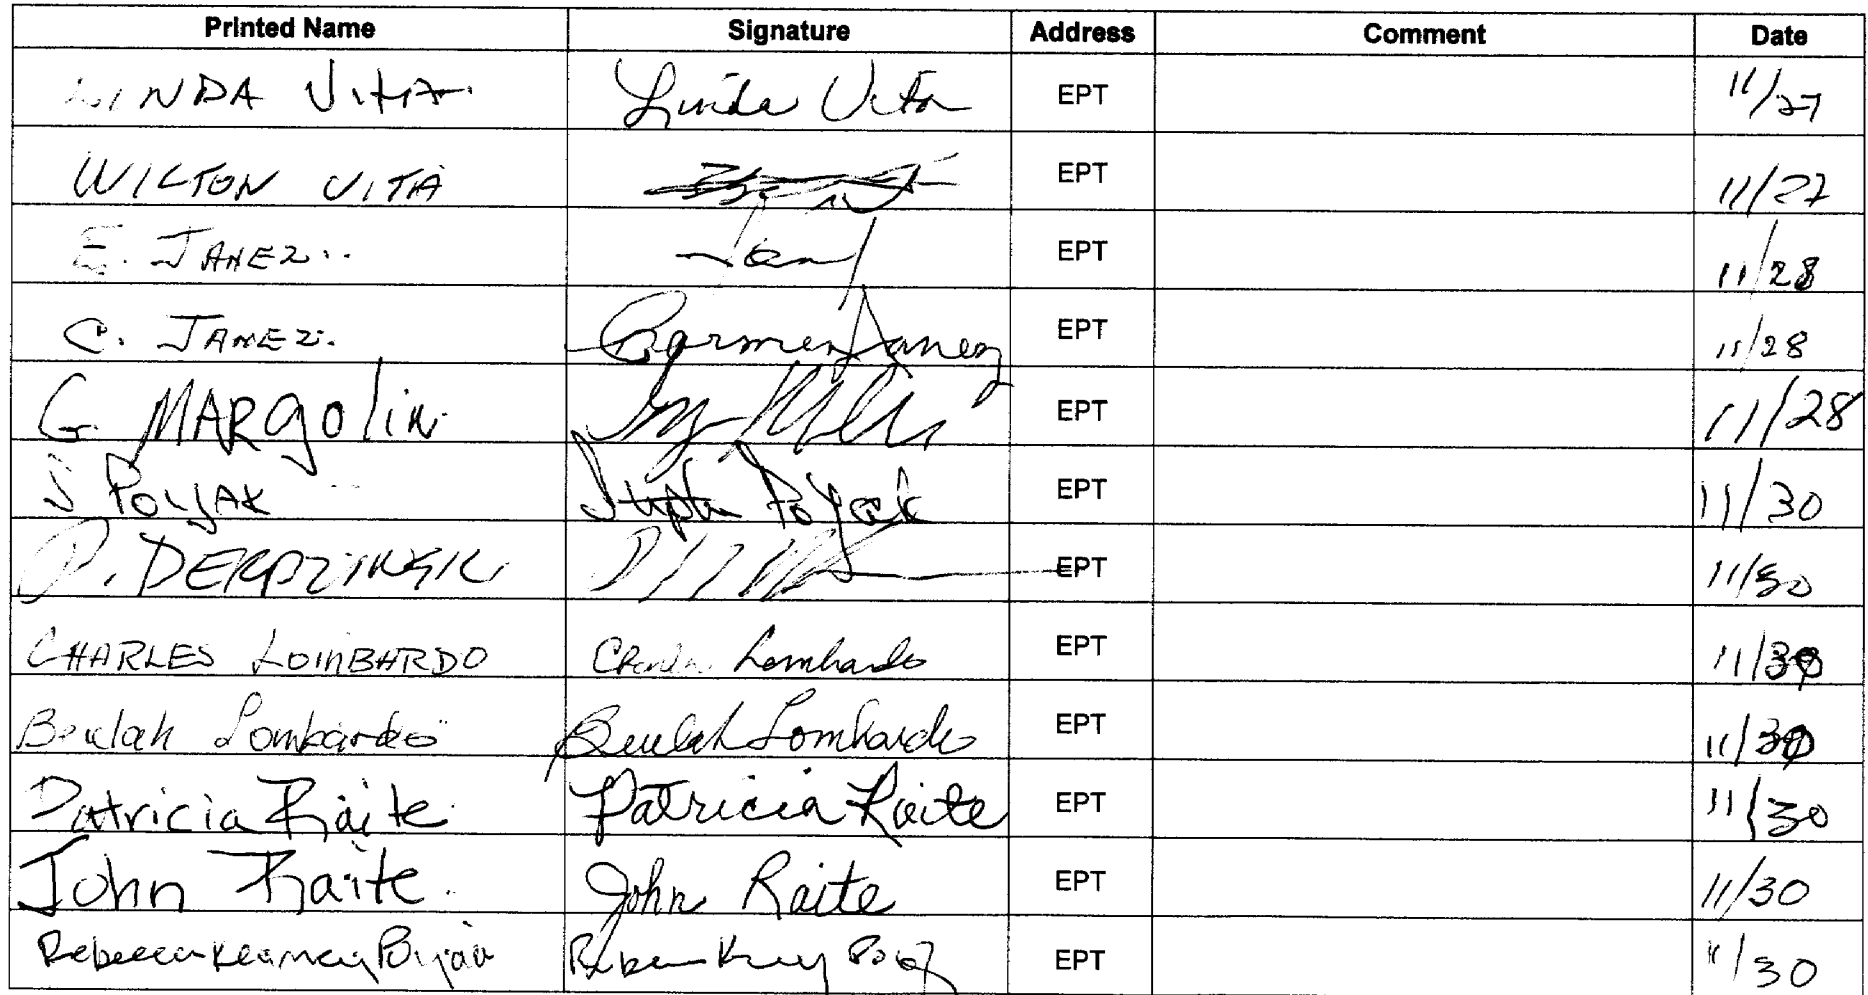 Printed Name Signature Address Comment Date
LINDA VITA Linda Vita EPT 11/27
WILTON VITA EPT 11/27
E. JANEZ EPT 11/28
C. JANEZ. Carmen Janez EPT 11/28
G. MARGOlin EPT 11/28
S POLYAK EPT 11/30
EPT 11/30
CHARLES LOMBARDO Lombardo EPT 11/30
Beulah Lombardo Beulah Lombardo EPT 11/30
Patricia Raite Patricia Raite EPT 11/30
John Raite John Raite EPT 11/30
Rebecca EPT 11/30